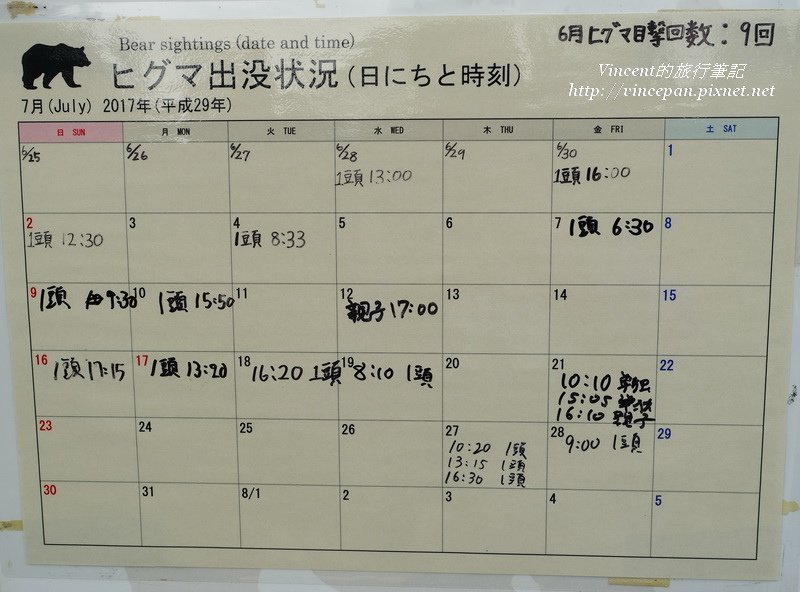 Bear sightings (date and time)
6月ヒグマ目撃回数：9回
ヒグマ出没状況(日にちと時刻)
Vincent的旅行筆記
http://vincepan.pixnet.net
7月(July) 2017年(平成29年)
日 SUN 月 MON 火 TUE 水 WED 木 THU 金 FRI 土 SAT
6/25 6/26 6/27 6/28 6/29 6/30 1
1頭 13:00 1頭 16:00
2 3 4 5 6 7 1頭 6:30 8
1頭 12:30 1頭 8:33
9 1頭 9:30 10 1頭 15:50 11 12 13 14 15
親子 17:00
16 1頭 17:15 17 1頭 13:20 18 16:20 1頭 19 8:10 1頭 20 21 22
10:10 単独
15:05 単独
16:10 親子
23 24 25 26 27 28 29
10:20 1頭 9:00 1頭
13:15 1頭
16:30 1頭
30 31 8/1 2 3 4 5